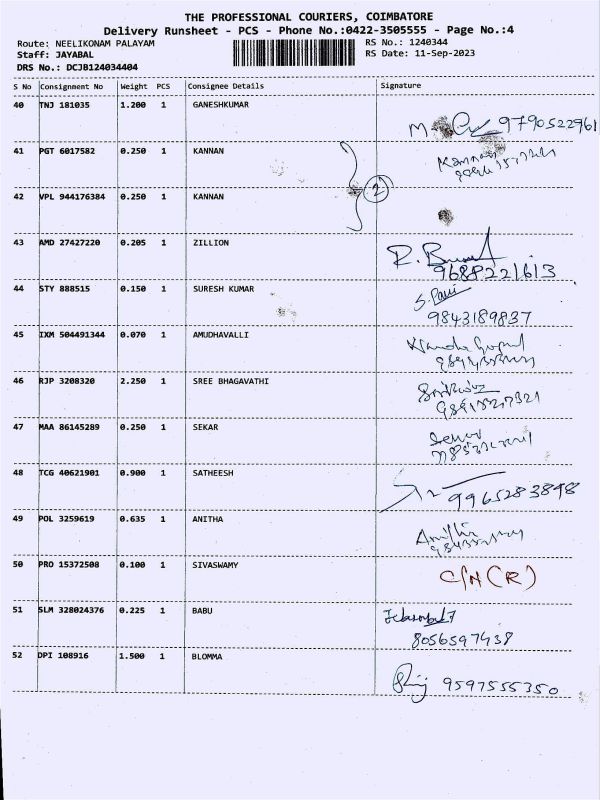 THE PROFESSIONAL COURIERS, COIMBATORE
Delivery Runsheet - PCS - Phone No.:0422-3505555 - Page No.:4
Route: NEELIKONAM PALAYAM RS No.: 1240344
Staff: JAYABAL RS Date: 11-Sep-2023
DRS No.: DCJB124034404
S No Consignment No Weight PCS Consignee Details Signature
40 TNJ 181035 1.200 1 GANESHKUMAR
9790522961
41 PGT 6017582 0.250 1 KANNAN
Kannan
2
42 VPL 944176384 0.250 1 KANNAN
43 AMD 27427220 0.205 1 ZILLION
R.
9688221613
44 STY 888515 0.150 1 SURESH KUMAR
S.
9843189837
45 IXM 504491344 0.070 1 AMUDHAVALLI
46 RJP 3208320 2.250 1 SREE BHAGAVATHI
47 MAA 86145289 0.250 1 SEKAR
48 TCG 40621901 0.900 1 SATHEESH
9965283898
49 POL 3259619 0.635 1 ANITHA
Anitha
50 PRO 15372508 0.100 1 SIVASWAMY
C/N (R)
51 SLM 328024376 0.225 1 BABU
8056597438
52 DPI 108916 1.500 1 BLOMMA
9597555350